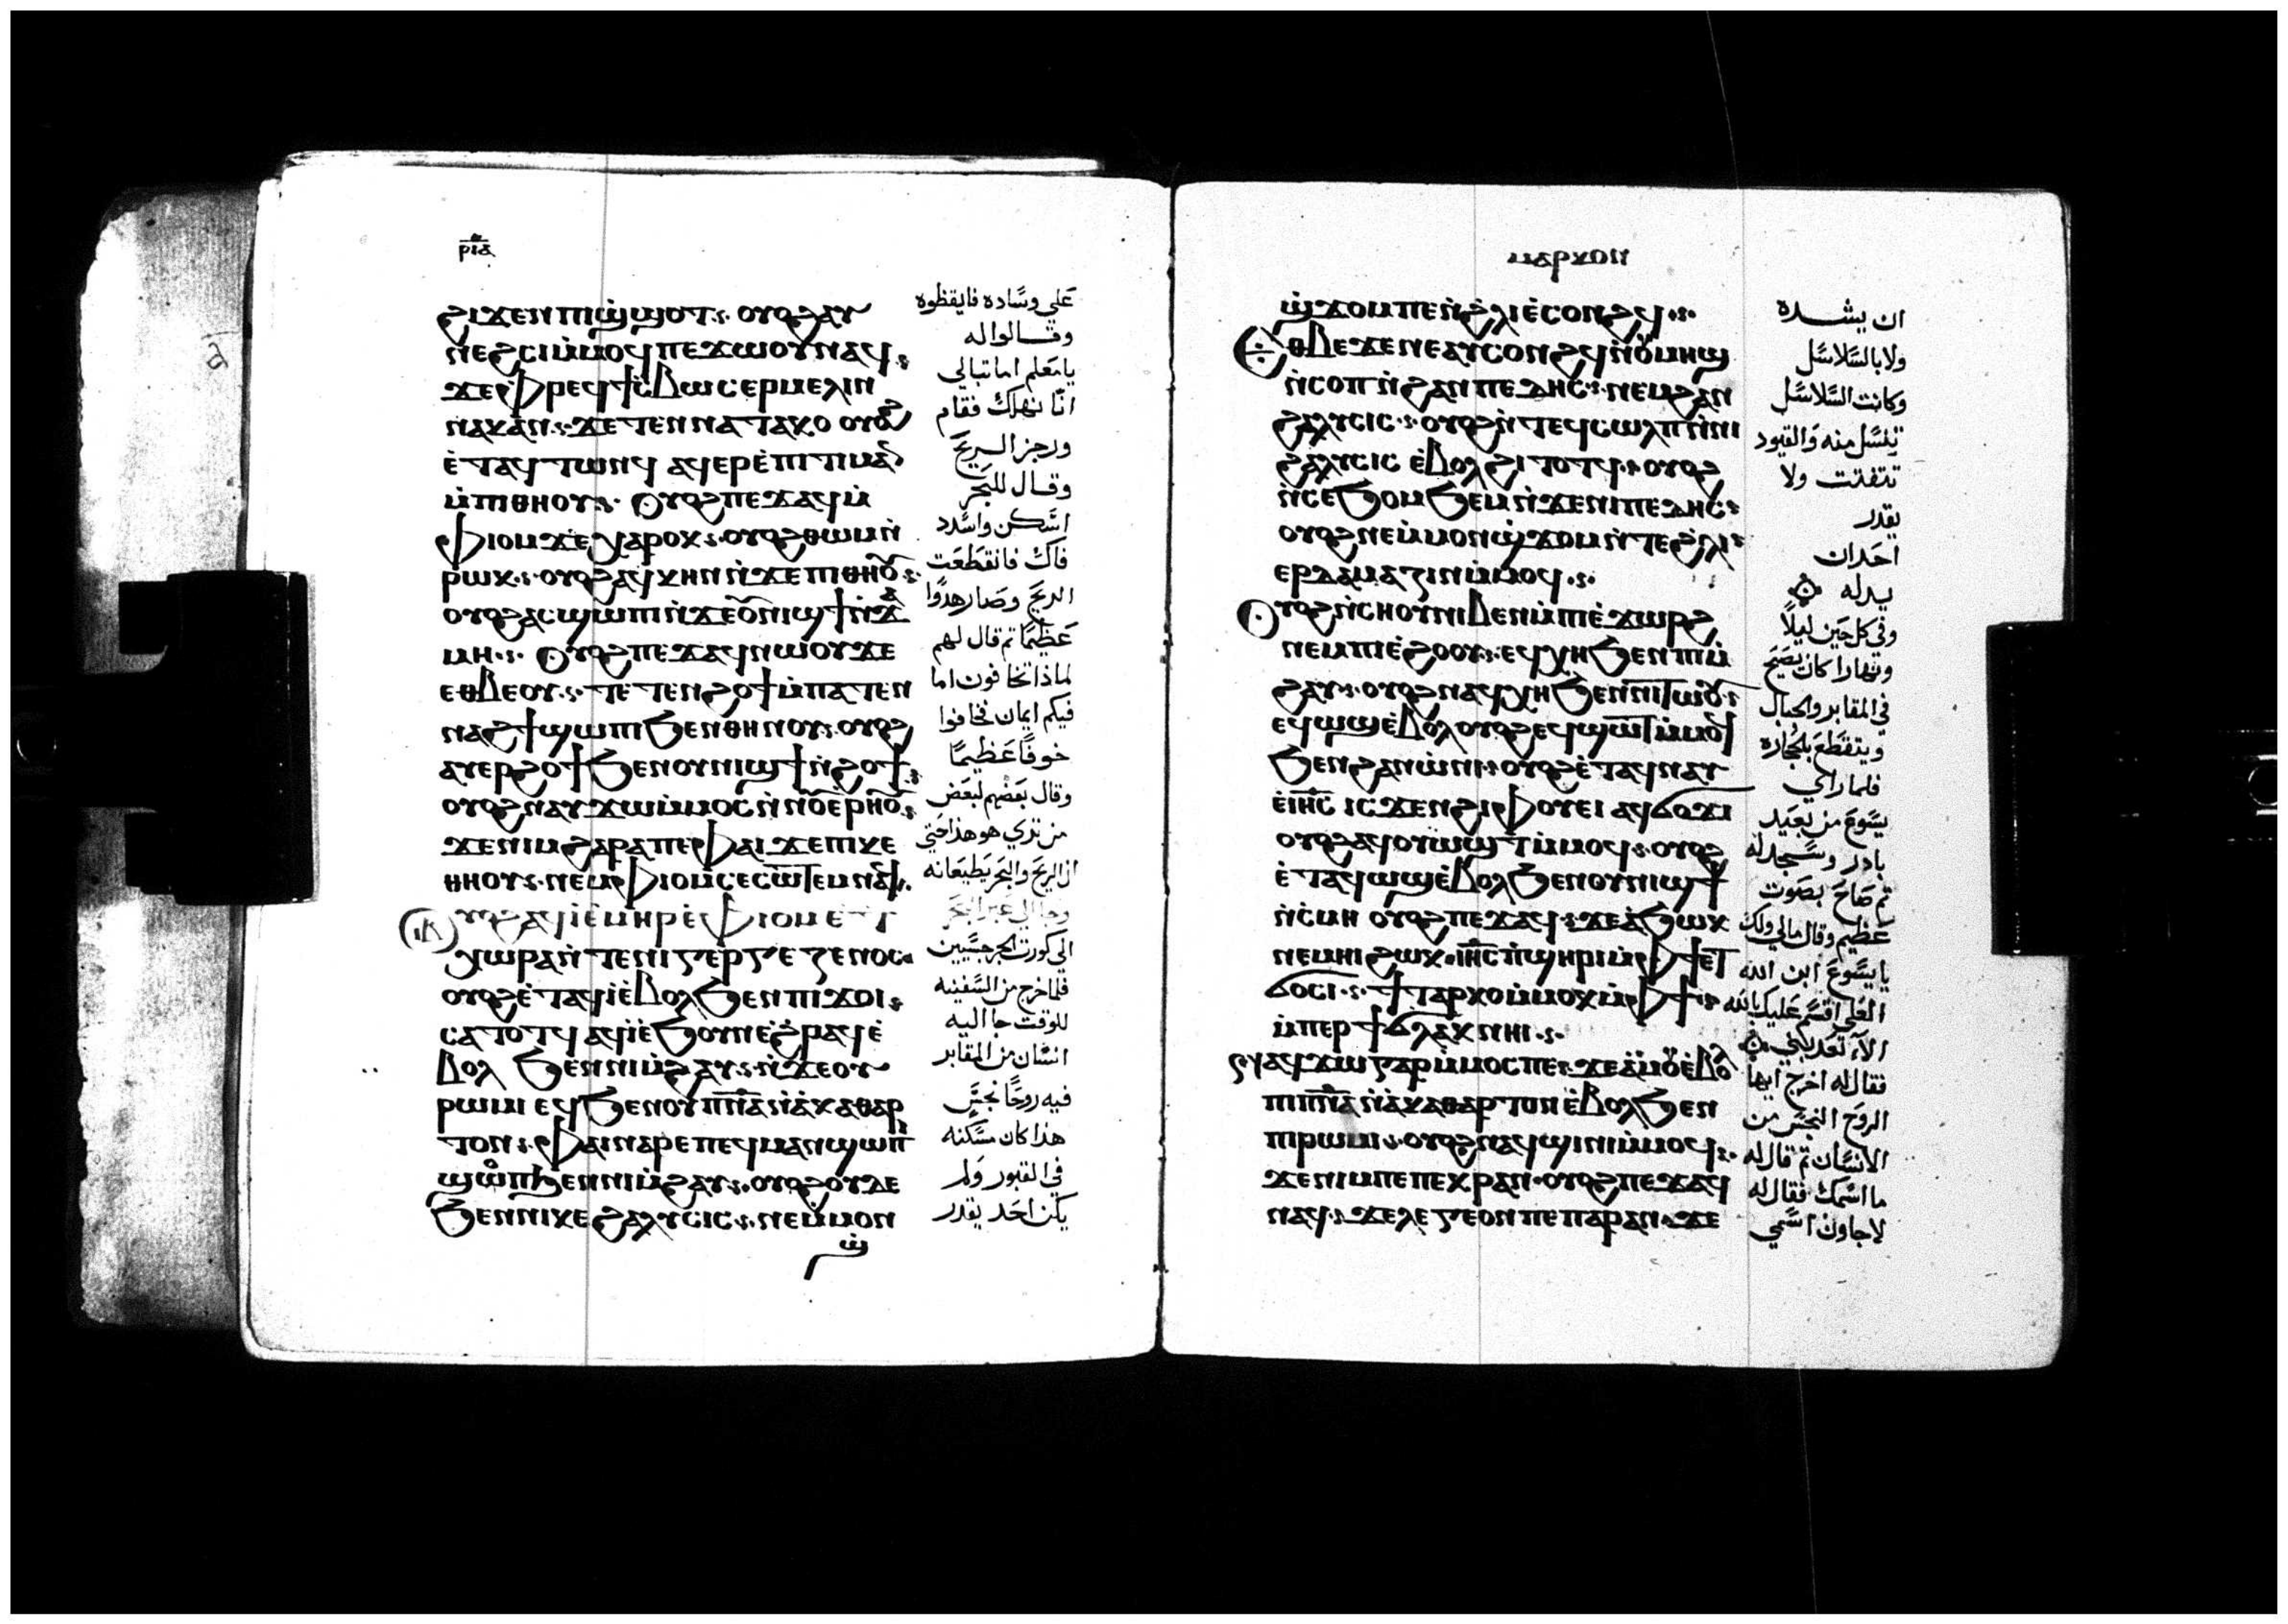 ⲣⲓⲁ
ϩⲓϫⲉⲛ ⲡⲓϣϣⲟⲧ ⲟⲩⲟϩ ⲁⲩ
ⲛⲉϩⲥⲓ ⲙ̀ⲙⲟϥ ⲡⲉϫⲱⲟⲩ ⲛⲁϥ
ϫⲉ ⲫⲣⲉϥϯⲥ̀ⲃⲱ ⲥⲉⲣⲙⲉⲗⲓⲛ
ⲛⲁⲕ ⲁⲛ ϫⲉ ⲧⲉⲛⲛⲁⲧⲁⲕⲟ ⲟⲩⲟϩ
ⲉ̀ⲧⲁϥⲧⲱⲛϥ ⲁϥⲉⲣⲉ̀ⲡⲓⲧⲓⲙⲁⲛ
ⲙ̀ⲡⲓⲑⲏⲟⲩ ⲟⲩⲟϩ ⲡⲉϫⲁϥ ⲙ̀
ⲫⲓⲟⲙ ϫⲉ ⲭⲁⲣⲱⲕ ⲟⲩⲟϩ ⲑⲱⲙ ⲛ̀
ⲣⲱⲕ ⲟⲩⲟϩ ⲁϥⲕⲏⲛ ⲛ̀ϫⲉ ⲡⲓⲑⲏⲟⲩ
ⲟⲩⲟϩ ⲁⲥϣⲱⲡⲓ ⲛ̀ϫⲉ ⲟⲩⲛⲓϣϯ ⲛ̀ϫⲁ
ⲙⲏ ⲟⲩⲟϩ ⲡⲉϫⲁϥ ⲛⲱⲟⲩ ϫⲉ
ⲉⲑⲃⲉ ⲟⲩ ⲧⲉⲧⲉⲛϩⲟϯ ⲙ̀ⲡⲁⲧⲉ ⲛ
ⲛⲁϩϯ ϣⲱⲡⲓ ϧⲉⲛ ⲑⲏⲛⲟⲩ ⲟⲩⲟϩ
ⲁⲩⲉⲣϩⲟϯ ϧⲉⲛ ⲟⲩⲛⲓϣϯ ⲛ̀ϩⲟϯ
ⲟⲩⲟϩ ⲛⲁⲩϫⲱ ⲙ̀ⲙⲟⲥ ⲛ̀ⲛⲟⲩⲉⲣⲏⲟⲩ
ϫⲉ ⲛⲓⲙ ϩⲁⲣⲁ ⲡⲉ ⲫⲁⲓ ϫⲉ ⲡⲓⲕⲉ
ⲑⲏⲟⲩ ⲛⲉⲙ ⲫⲓⲟⲙ ⲥⲉⲥⲱⲧⲉⲙ ⲛⲁϥ
ⲩⲟϩ ⲁϥⲓ̀ ⲉ̀ⲙⲏⲣ ⲉ̀ⲫⲓⲟⲙ ⲉϯ
ⲭⲱⲣⲁ ⲛ̀ⲧⲉ ⲛⲓⲅⲉⲣⲅⲉⲍⲉⲛⲟⲥ
ⲟⲩⲟϩ ⲉ̀ⲧⲁϥⲓ̀ ⲉ̀ⲃⲟⲗ ϧⲉⲛ ⲡⲓϫⲟⲓ
ⲥⲁⲧⲟⲧϥ ⲁϥⲓ̀ ⲉ̀ϧⲟⲩⲛ ⲉ̀ϩⲣⲁϥ ⲉ̀
ⲃⲟⲗ ϧⲉⲛ ⲛⲓⲙ̀ϩⲁⲩ ⲛ̀ϫⲉ ⲟⲩ
ⲣⲱⲙⲓ ⲉϥϧⲉⲛ ⲟⲩⲡ̅ⲛ̅ⲁ̅ ⲛ̀ⲁ̀ⲕⲁⲑⲁⲣ
ⲧⲟⲛ ⲫⲁⲓ ⲛⲁⲣⲉ ⲡⲉϥⲙⲁⲛϣⲱⲡⲓ
ϣⲟⲡ ϧⲉⲛ ⲛⲓⲙ̀ϩⲁⲩ ⲟⲩⲟϩ ⲟⲩⲇⲉ
ϧⲉⲛ ⲛⲓⲕⲉϩⲁⲗⲩⲥⲓⲥ ⲛⲉⲙ̀ⲙⲟⲛ
ϣ̀
على وساده فايقظوه
وقالوا له
يا معلم اما تبالي
انّا نهلك فقام
ورجز الريح
وقال للبحر
اسكن واسدد
فاك فانقطعت
الريح وصار هدوًا
عظيمًا ثم قال لهم
لماذا تخافون اما
فيكم ايمان فخافوا
خوفًا عظيمًا
وقال بعضهم لبعض
من تري هو هذا حتي
ان الريح والبحر يطيعانه
وجا الي عبر البحر
الى كورة الجرجسيين
فلما خرج من السفينه
للوقت جا اليه
انسان من المقابر
فيه روحًا نجس
هذا كان مسكنه
في القبور ولم
يكن احد يقدر
ⲙⲁⲣⲕⲟⲛ
ϣ̀ϫⲟⲙ ⲡⲉ ⲛ̀ϩ̀ⲗⲓ ⲉ̀ⲥⲟⲛϩϥ
ⲑⲃⲉ ϫⲉ ⲛⲉⲁⲩⲥⲟⲛϩϥ ⲛ̀ⲟⲩⲙⲏϣ
ⲛ̀ⲥⲟⲡ ⲛ̀ϩⲁⲛⲡⲉⲇⲏⲥ ⲛⲉⲙ ϩⲁⲛ
ϩⲁⲗⲩⲥⲓⲥ ⲟⲩⲟϩ ⲛ̀ⲧⲉϥⲥⲱⲗⲡ ⲛ̀ⲛⲓ
ϩⲁⲗⲩⲥⲓⲥ ⲉ̀ⲃⲟⲗ ϩⲓⲧⲟⲧϥ ⲟⲩⲟϩ
ⲛ̀ⲥⲉϧⲟⲙϧⲉⲙ ⲛ̀ϫⲉ ⲛⲓⲡⲉⲇⲏⲥ
ⲟⲩⲟϩ ⲛⲉⲙ̀ⲙⲟⲛ ϣ̀ϫⲟⲙ ⲛ̀ⲧⲉ ϩ̀ⲗⲓ
ⲉⲣⲇⲁⲙⲁⲍⲓⲛ ⲙ̀ⲙⲟϥ
ⲟⲩⲟϩ ⲛ̀ⲥⲛⲟⲩ ⲛⲓⲃⲉⲛ ⲙ̀ⲡⲓⲉ̀ϫⲱⲣϩ
ⲛⲉⲙ ⲡⲓⲉ̀ϩⲟⲟⲩ ⲉϥⲭⲏ ϧⲉⲛ ⲡⲓⲙ̀
ϩⲁⲩ ⲟⲩⲟϩ ⲛⲁϥⲭⲏ ϧⲉⲛ ⲛⲓⲧⲱⲟⲩ
ⲉϥⲱϣ ⲉ̀ⲃⲟⲗ ⲟⲩⲟϩ ⲉϥϣⲱⲧ ⲙ̀ⲙⲟϥ
ϧⲉⲛ ϩⲁⲛⲱ̀ⲛⲓ ⲟⲩⲟϩ ⲉ̀ⲧⲁϥⲛⲁⲩ
ⲉ̀ⲓⲏ̅ⲥ̅ ⲓⲥϫⲉⲛ ϩⲓⲫⲟⲩⲉⲓ ⲁϥϭⲟϫⲓ
ⲟⲩⲟϩ ⲁϥⲟⲩⲱϣⲧ ⲙ̀ⲙⲟϥ ⲟⲩⲟϩ
ⲉ̀ⲧⲁϥⲱϣ ⲉ̀ⲃⲟⲗ ϧⲉⲛ ⲟⲩⲛⲓϣϯ
ⲛ̀ⲥⲙⲏ ⲟⲩⲟϩ ⲡⲉϫⲁϥ ϫⲉ ⲁ̀ϧⲱⲕ
ⲛⲉⲙⲏⲓ ϩⲱⲕ ⲓⲏ̅ⲥ̅ ⲡ̀ϣⲏⲣⲓ ⲙ̀ⲫϯ ⲉⲧ
ϭⲟⲥⲓ ϯⲧⲁⲣⲕⲟ ⲙ̀ⲙⲟⲕ ⲙ̀ⲫϯ
ⲙ̀ⲡⲉⲣϯϭⲗⲁⲕ ⲛⲏⲓ
ⲛⲁϥϫⲱ ⲅⲁⲣ ⲙ̀ⲙⲟⲥ ⲡⲉ ϫⲉ ⲁ̀ⲙⲟⲩ ⲉ̀ⲃⲟⲗ
ⲡⲓⲡ̅ⲛ̅ⲁ̅ ⲛ̀ⲁ̀ⲕⲁⲑⲁⲣⲧⲟⲛ ⲉ̀ⲃⲟⲗ ϧⲉⲛ
ⲡⲓⲣⲱⲙⲓ ⲟⲩⲟϩ ⲛⲁϥϣⲓⲛⲓ ⲙ̀ⲙⲟϥ
ϫⲉ ⲛⲓⲙ ⲡⲉ ⲡⲉⲕⲣⲁⲛ ⲟⲩⲟϩ ⲡⲉϫⲁϥ
ⲛⲁϥ ϫⲉ ⲗⲉⲅⲉⲟⲛ ⲡⲉ ⲡⲁⲣⲁⲛ ϫⲉ
ان يشده
ولا بالسلاسل
وكانت السلاسل
تنسل منه والقيود
تتفتت ولا
يقدر
احد ان
يدله
وفي كل حين ليلاً
ونهارا كان يصيح
في المقابر والجبال
ويتقطع بلحجاره
فلما راي
يسوع من بعيد
بادر وسجد له
ثم صاح بصوت
عظيم وقال مالي ولك
يا يسوع ابن الله
العلي اقسم عليك بالله
الاّ تعدبني
فقال له اخرج ايها
الروح النجس من
الانسان ثم قال له
ما اسمك فقال له
لاجاون اسمي